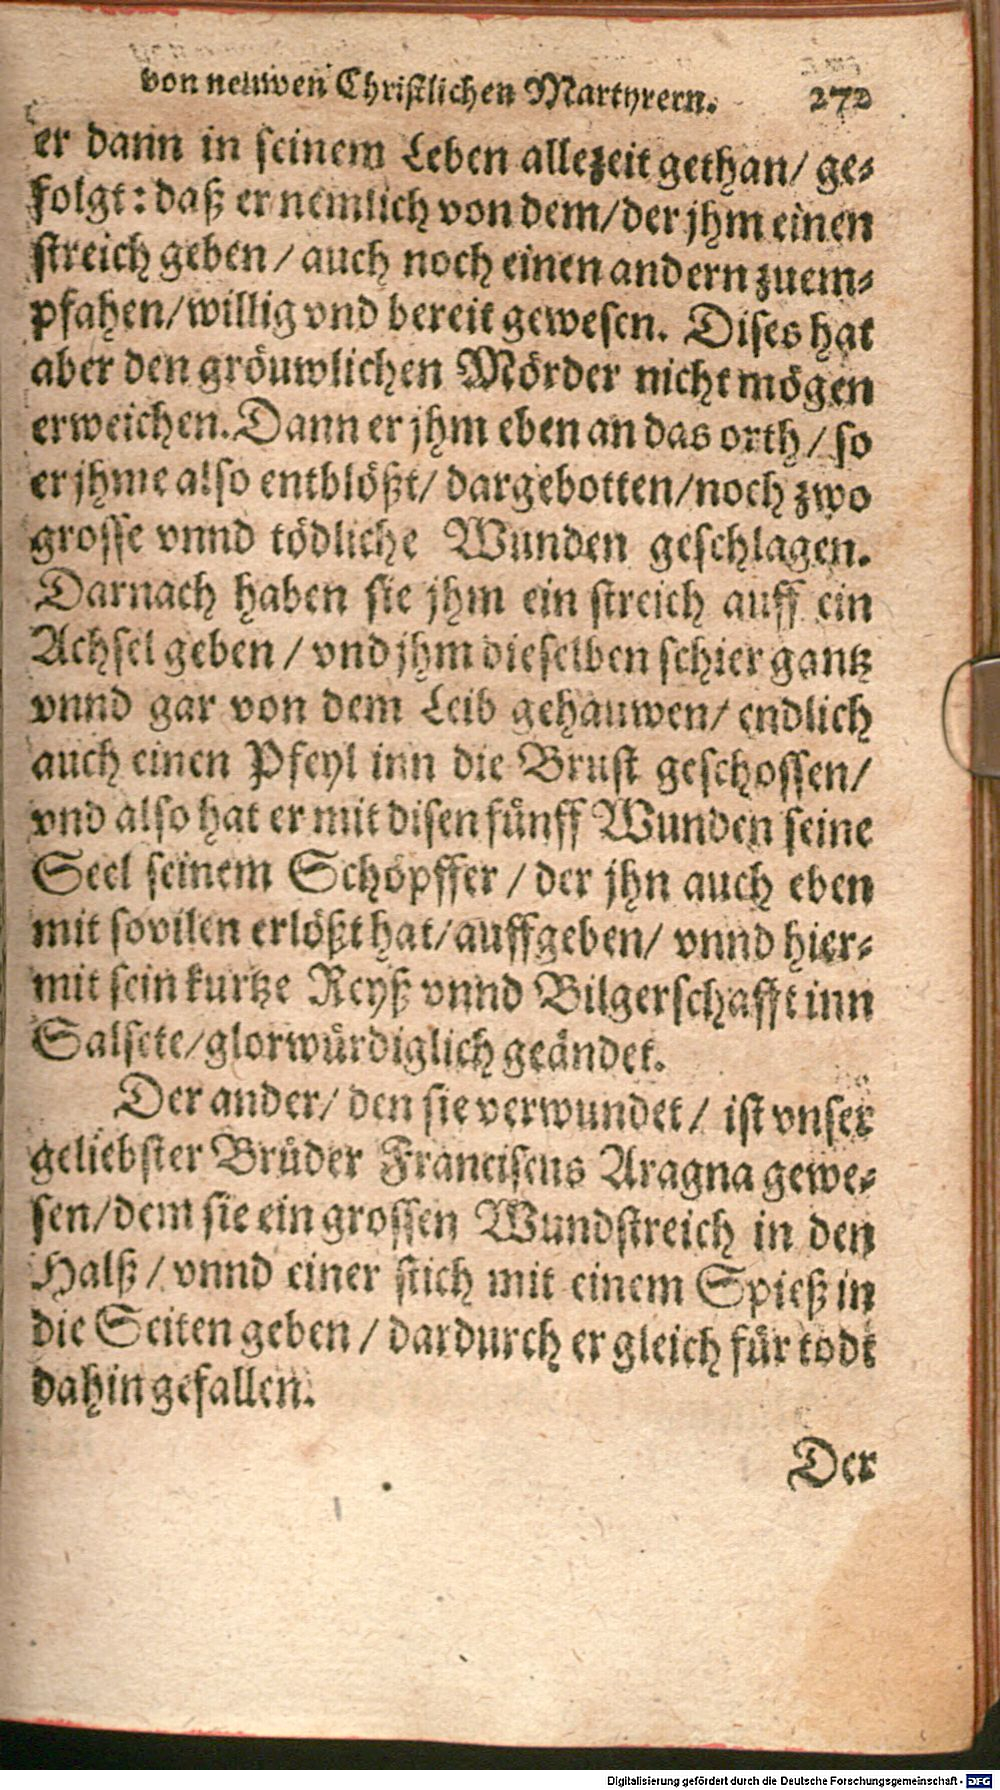 von neuwen Christlichen Martyrern. 272
er dann in seinem Leben allezeit gethan/ ge-
folgt: daß er nemlich von dem/ der jhm einen
streich geben/ auch noch einen andern zuem-
pfahen/ willig vnd bereit gewesen. Dises hat
aber den gröuwlichen Mörder nicht mögen
erweichen. Dann er jhm eben an das orth/ so
er jhme also entblößt/ dargebotten/ noch zwo
grosse vnnd tödliche Wunden geschlagen.
Darnach haben sie jhm ein streich auff ein
Achsel geben/ vnd jhm dieselben schier gantz
vnnd gar von dem Leib gehauwen/ endlich
auch einen Pfeyl inn die Brust geschossen/
vnd also hat er mit disen fünff Wunden seine
Seel seinem Schöpffer/ der jhn auch eben
mit sovilen erlößt hat/ auffgeben/ vnnd hier-
mit sein kurtze Reyß vnnd Bilgerschafft inn
Salsete/ glorwürdiglich geändet.
Der ander/ den sie verwundet/ ist vnser
geliebster Brüder Franciscus Aragna gewe-
sen/ dem sie ein grossen Wundstreich in den
Halß/ vnnd einer stich mit einem Spieß in
die Seiten geben/ dardurch er gleich für todt
dahin gefallen.
Der
Digitalisierung gefördert durch die Deutsche Forschungsgemeinschaft - DFG